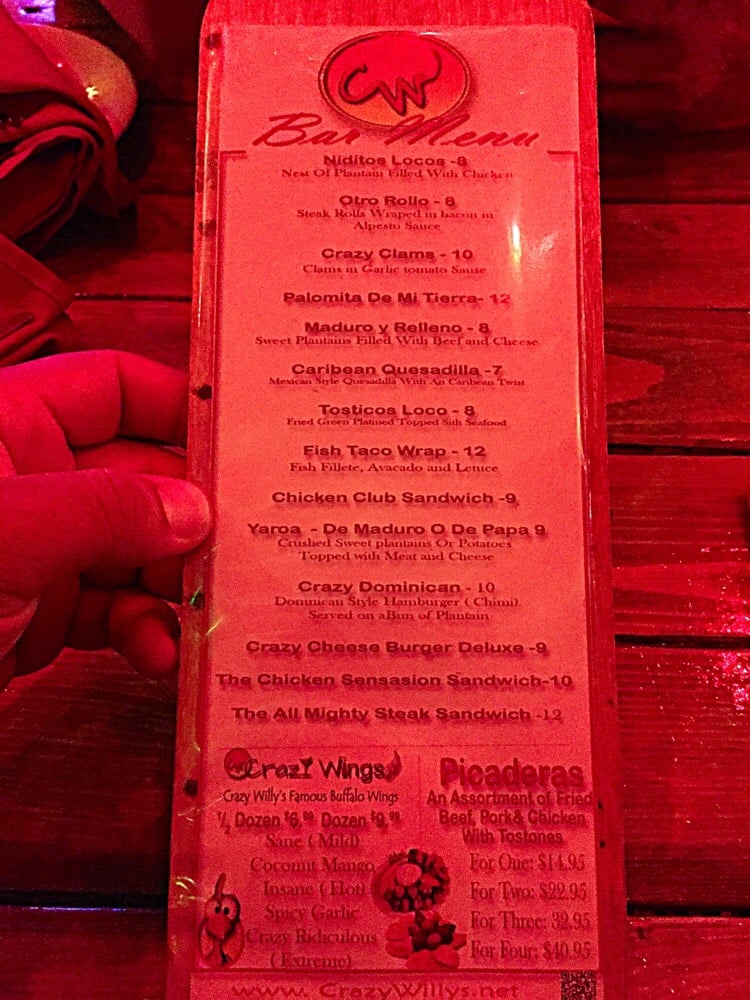 CW
Bar Menu
Niditos Locos -8
Nest Of Plantain Filled With Chicken
Otro Rollo - 8
Steak Rolls Wraped in bacon in
Alpesto Sauce
Crazy Clams - 10
Clams in Garlic tomato Sause
Palomita De Mi Tierra- 12
Maduro y Relleno - 8
Sweet Plantains Filled With Beef and Cheese
Caribean Quesadilla -7
Mexican Style Quesadilla With An Caribean Twist
Tosticos Loco - 8
Fried Green Platined Topped Sith Seafood
Fish Taco Wrap - 12
Fish Fillete, Avacado and Letuce
Chicken Club Sandwich -9
Yaroa - De Maduro O De Papa 9
Crushed Sweet plantains Or Potatoes
Topped with Meat and Cheese
Crazy Dominican - 10
Dominican Style Hamburger ( Chimi)
Served on aBun of Plantain
Crazy Cheese Burger Deluxe -9
The Chicken Sensasion Sandwich-10
The All Mighty Steak Sandwich -12
Crazy Wings
Crazy Willy's Famous Buffalo Wings
½ Dozen $6.99 Dozen $9.99
Sane ( Mild)
Coconut Mango
Insane ( Hot)
Spicy Garlic
Crazy Ridiculous
( Extreme)
Picaderas
An Assortment of Fried
Beef, Pork& Chicken
With Tostones
For One: $14.95
For Two: $22.95
For Three: 32.95
For Four: $40.95
www. CrazyWillys.net